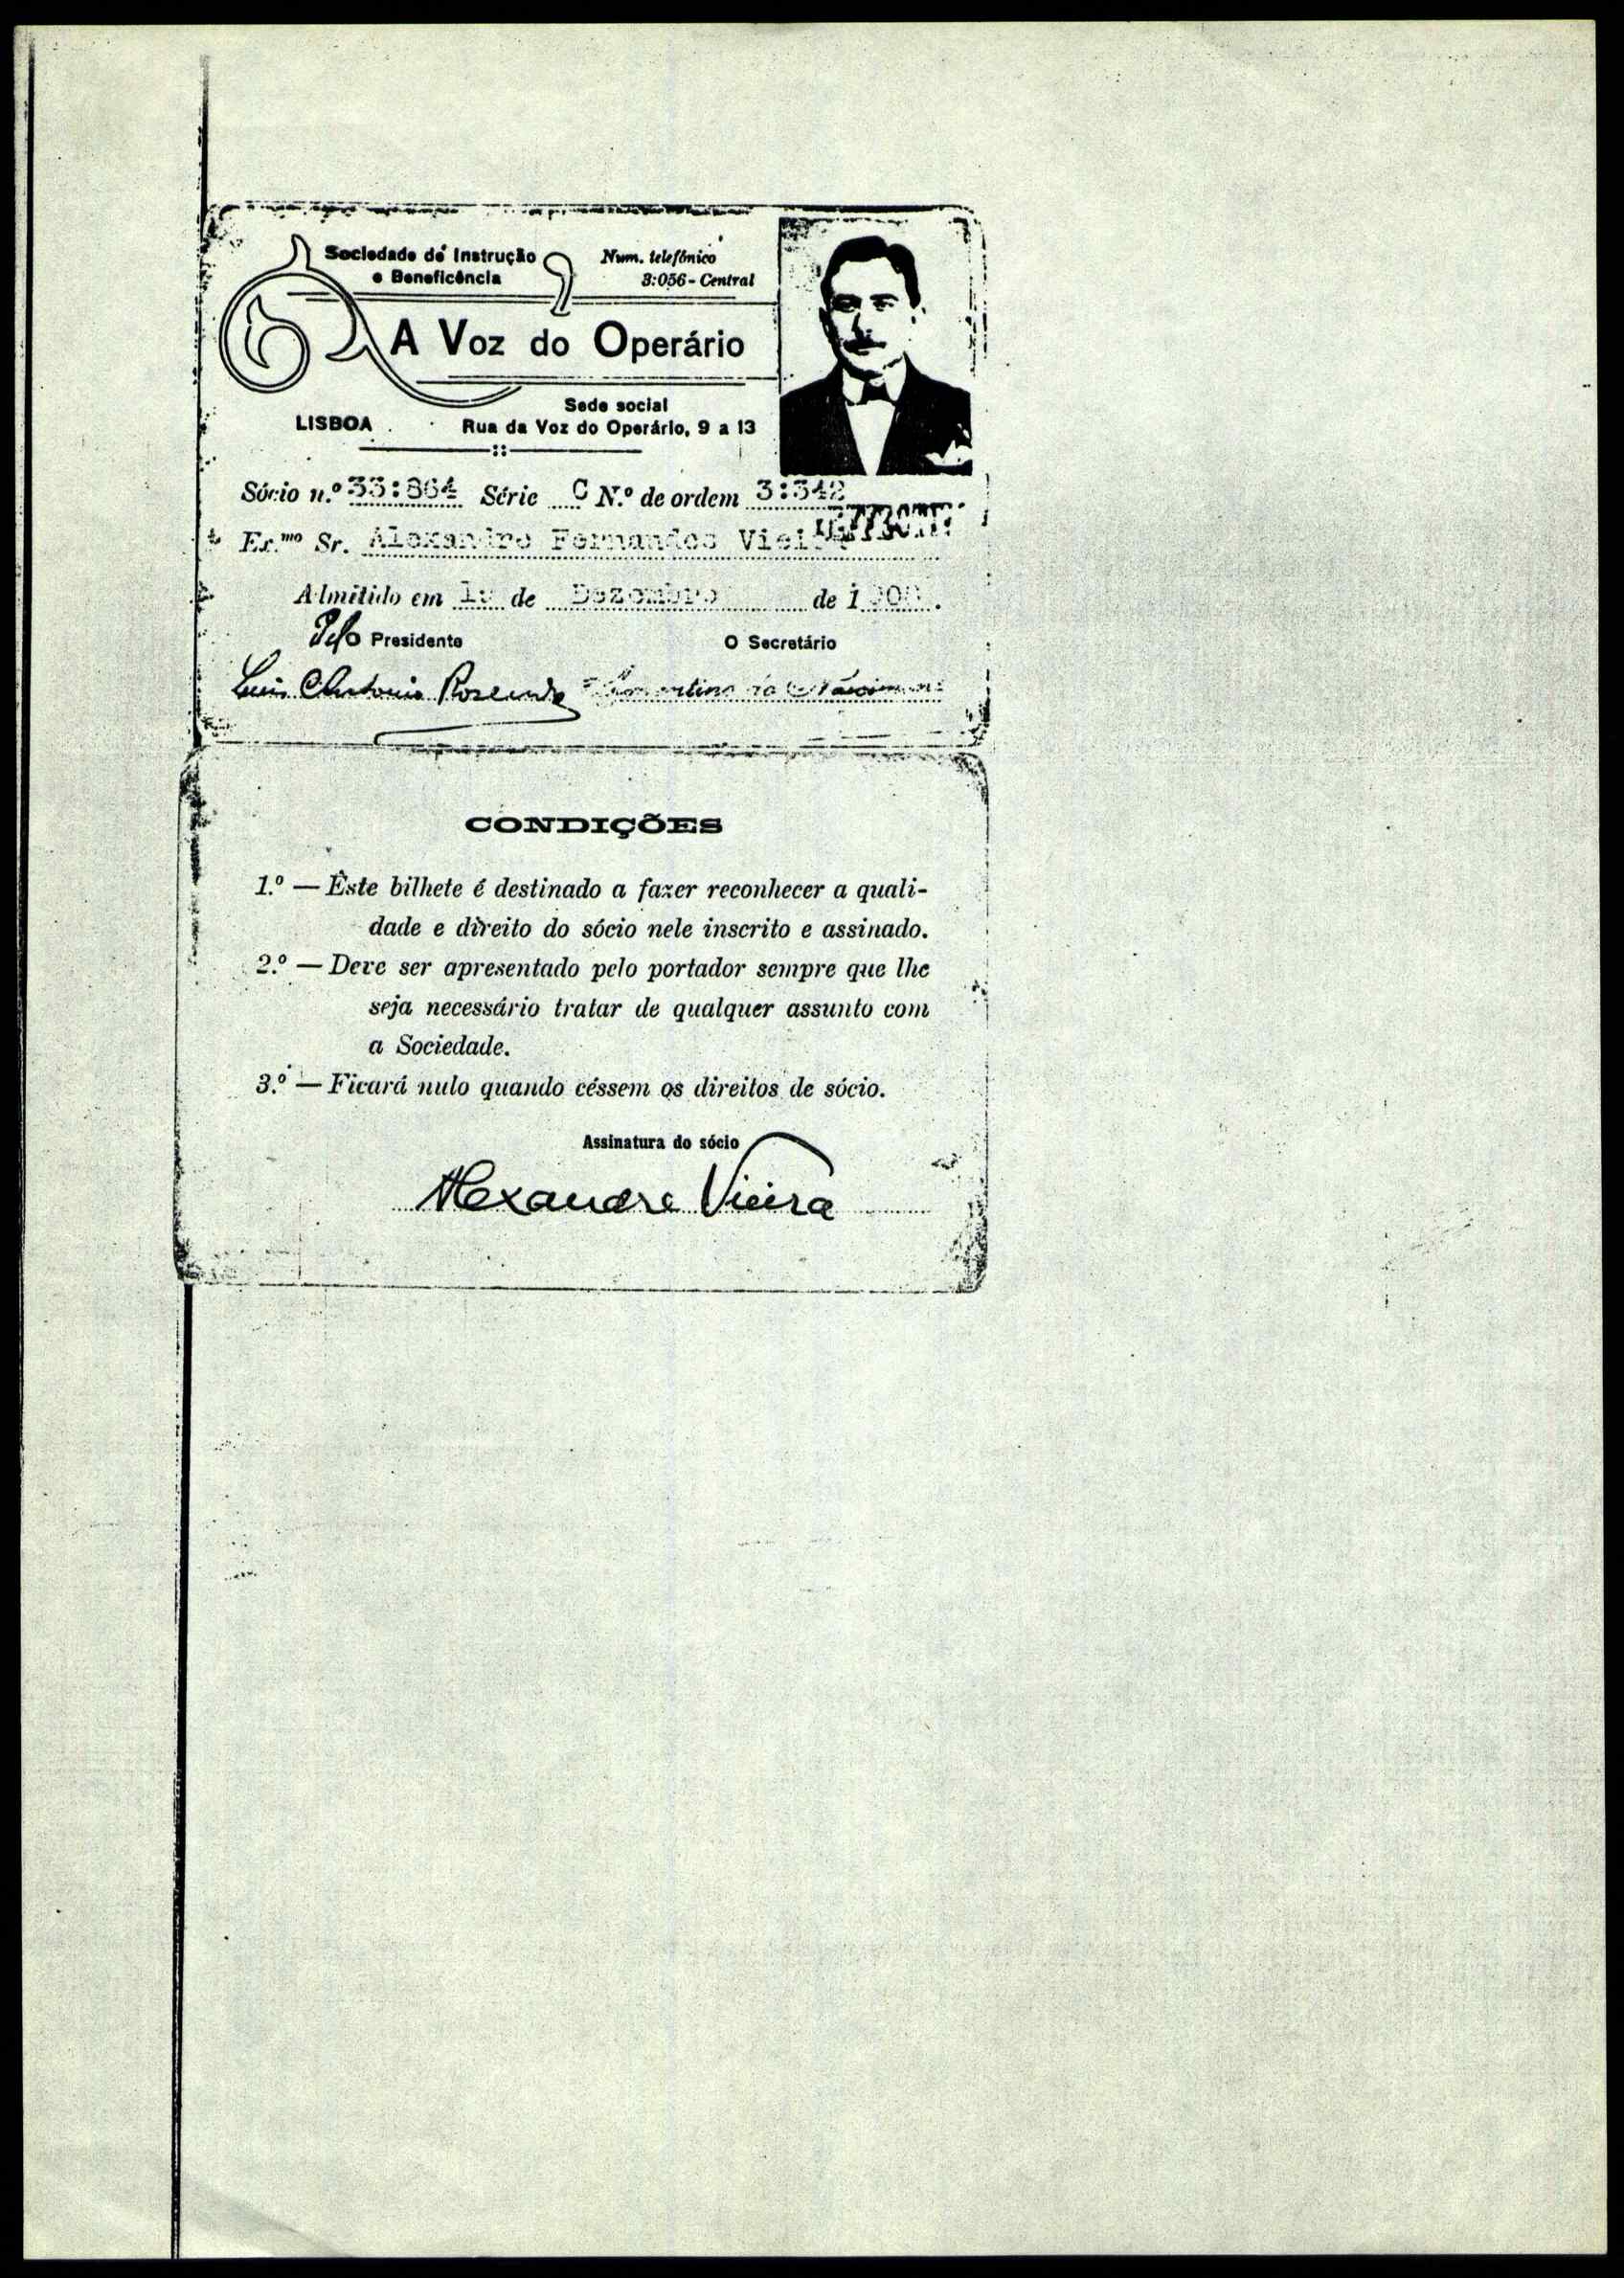 Sociedade de Instrução
e Beneficência
Num. telefónico
3:056 - Central
A Voz do Operário
Sede social
LISBOA
Rua da Voz do Operário, 9 a 13
Sócio n.º 33:864 Série C N.º de ordem 3:342
Ex.mo Sr. Alexandre Fernandes Vieira
Admitido em de Dezembro de
Pelo Presidente
O Secretário
Luis Antonio Rosendo
CONDIÇÕES
1.º — Êste bilhete é destinado a fazer reconhecer a quali-
dade e direito do sócio nele inscrito e assinado.
2.º — Deve ser apresentado pelo portador sempre que lhe
seja necessário tratar de qualquer assunto com
a Sociedade.
3.º — Ficará nulo quando céssem os direitos de sócio.
Assinatura do sócio
Alexandre Vieira